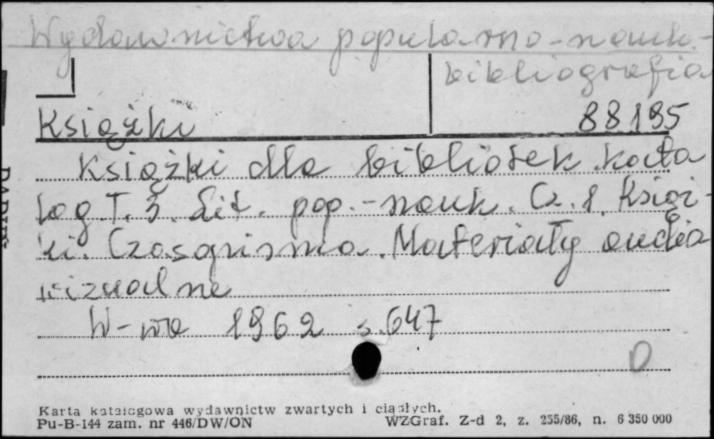 Wydawnictwa popularno-nauk.-
bibliografia
Książki
88195
Książki dla bibliotek. Kata
log T. 3. Lit. pop.-nauk. Cz. 1. Książ-
ki. Czasopisma. Materiały audio
wizualne
W-wa 1962 s. 647
D
Karta katalogowa wydawnictw zwartych i ciągłych.
Pu-B-144 zam. nr 446/DW/ON
WZGraf. Z-d 2, z. 255/86, n. 6 350 000